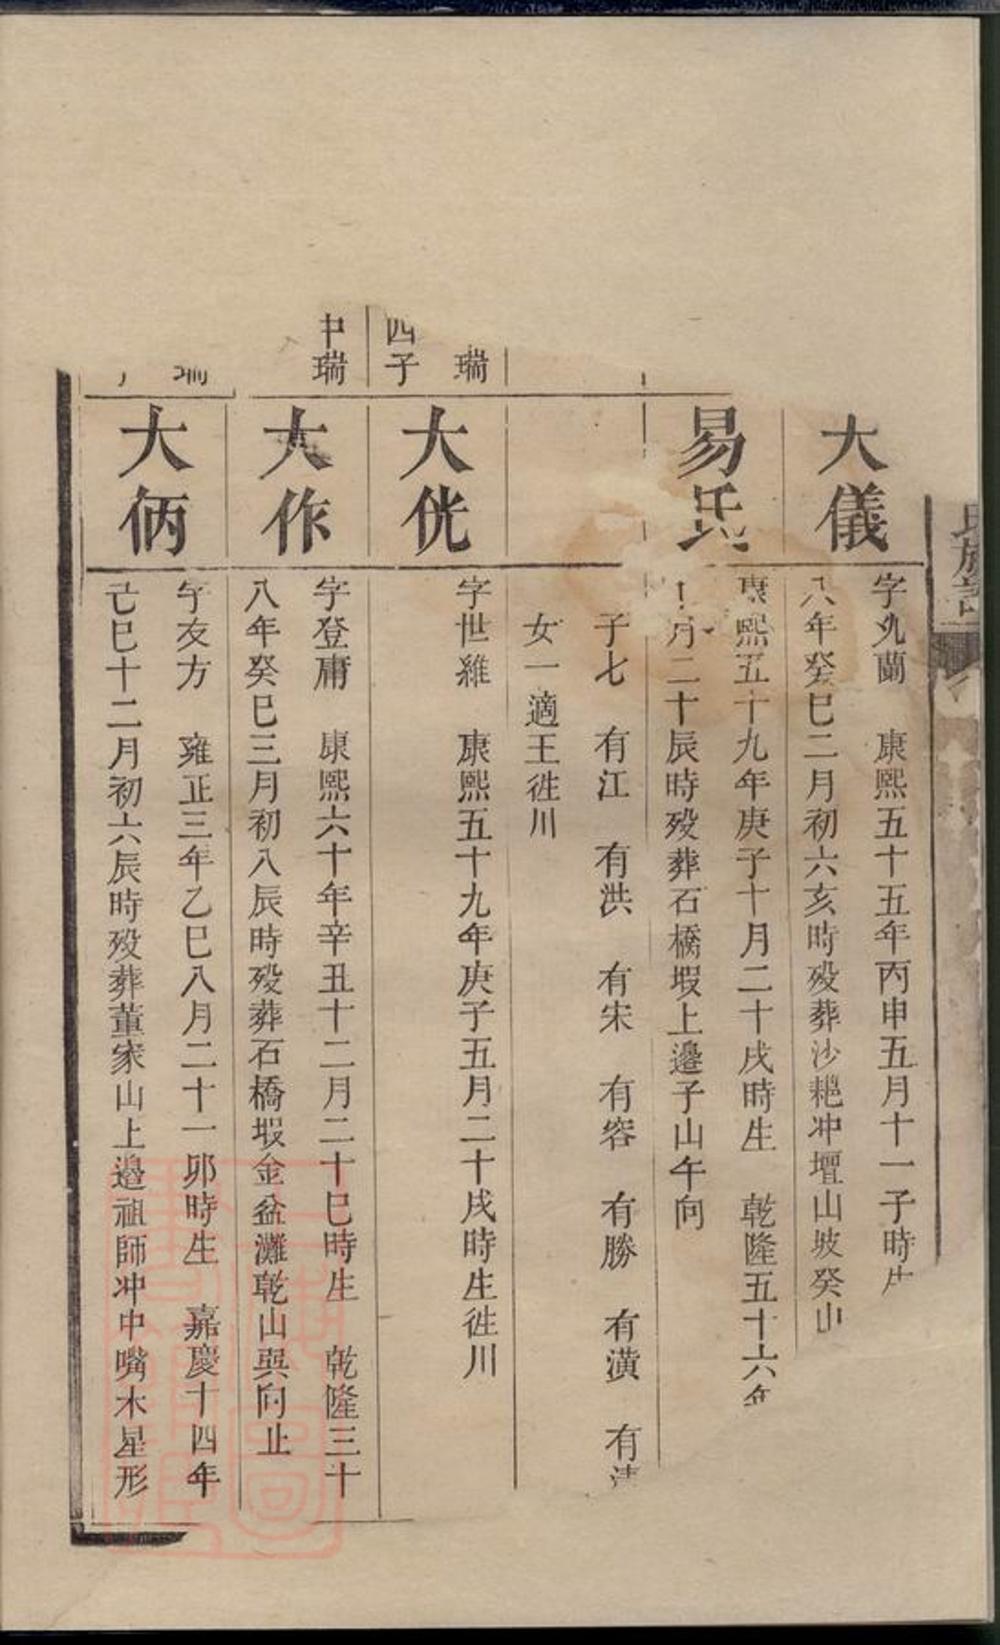 氏族譜
大儀
字九蘭 康熙五十五年丙申五月十一子時生
八年癸巳二月初六亥時殁葬沙耙冲壇山坡癸山
易氏
康熙五十九年庚子十月二十戌時生 乾隆五十六年
月二十辰時殁葬石橋塅上邊子山午向
子七 有江 有洪 有宋 有容 有勝 有潢 有清
女一適王徃川
瑞
四子
大侊
字世維 康熙五十九年庚子五月二十戌時生徃川
中瑞
大作
字登庸 康熙六十年辛丑十二月二十巳時生 乾隆三十
八年癸巳三月初八辰時殁葬石橋塅金盆灘乾山巽向止
瑞
大侕
字友方 雍正三年乙巳八月二十一卯時生 嘉慶十四年
己巳十二月初六辰時殁葬董家山上邊祖師冲中嘴木星形